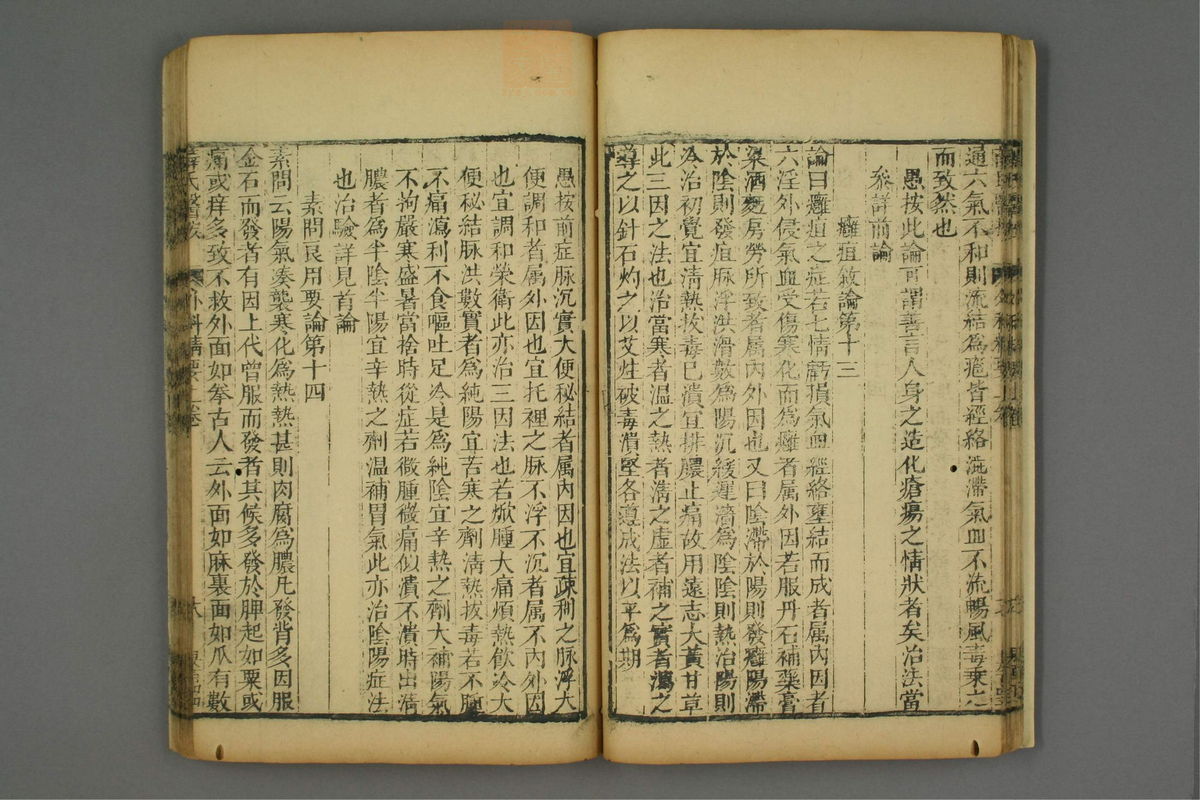 通六氣不和則流結爲癰皆經絡澁滯氣血不流暢風毒乗之
而致然也
愚按此論可謂善言人身之造化瘡瘍之情狀者矣治法當
叅詳前論
癰疽敘論第十三
論曰癰疽之症若七情虧損氣血經絡壅結而成者属內因者
六淫外侵氣血受傷寒化而爲癰者属外因若服丹石補藥膏
粱酒麫房勞所致者属內外因也又曰陰滯於陽則發癰陽滯
於陰則發疽脉浮洪滑數爲陽沉緩遲濇爲陰陰則熱治陽則
冷治初覺宜淸熱拔毒已潰宜排膿止痛故用遠志大黃甘草
此三因之法也治當寒者温之熱者淸之虛者補之實者瀉之
導之以針石灼之以艾炷破毒潰堅各遵成法以平爲期
愚按前症脉沉實大便秘結者属內因也宜疎利之脉浮大
便調和者属外因也宜托裡之脉不浮不沉者属不內外因
也宜調和榮衛此亦治三因法也若焮腫大痛煩熱飲冷大
便秘結脉洪數實者爲純陽宜苦寒之劑淸熱拔毒若不腫
不痛瀉利不食嘔吐足冷是爲純陰宜辛熱之劑大補陽氣
不拘嚴寒盛暑當捨時從症若微腫微痛似潰不潰時出淸
膿者爲半陰半陽宜辛熱之劑温補胃氣此亦治陰陽症法
也治驗詳見首論
素問艮用要論第十四
素問云陽氣凑襲寒化爲熱熱甚則肉腐爲膿凡發背多因服
金石而發者有因上代曾服而發者其候多發於胛起如粟或
痛或痒多致不救外面如拳古人云外面如麻裏面如瓜有數
薛氏醫按 外科精要上卷